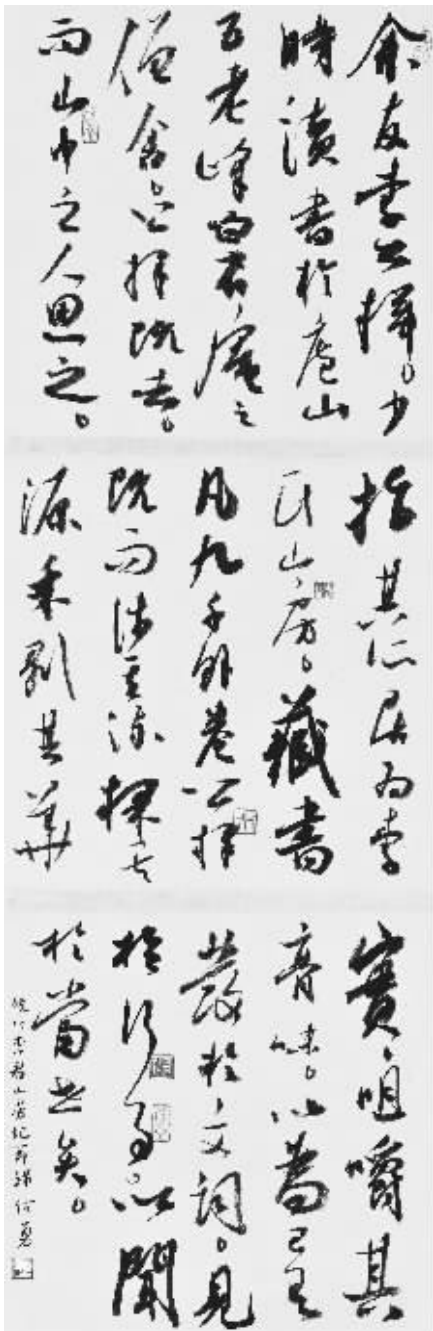 余友李公擇。少
時讀書於廬山
五老峰白石庵之
僧舍。公擇既去。
而山中之人思之。
指其所居為李
氏山房。藏書
凡九千餘卷公擇
既而涉其流探其
源采剝其華
實咀嚼其
膏味。以為己有
發於文詞。見
於行事。以聞
於當世矣。
李君山房記節錄